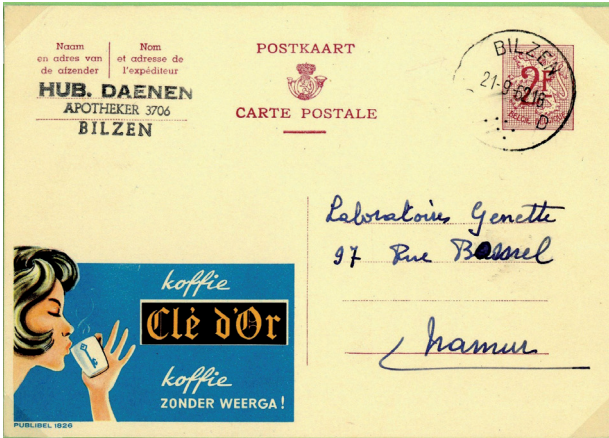 Naam
en adres van
de afzender
Nom
et adresse de
l'expéditeur
HUB. DAENEN
APOTHEKER 3706
BILZEN
POSTKAART
CARTE POSTALE
BILZEN
21-9-62 18
D
2F
BELGIE
Laboratoires Genette
97 Rue
Namur
koffie
Clé d'Or
koffie
ZONDER WEERGA!
PUBLIBEL 1826